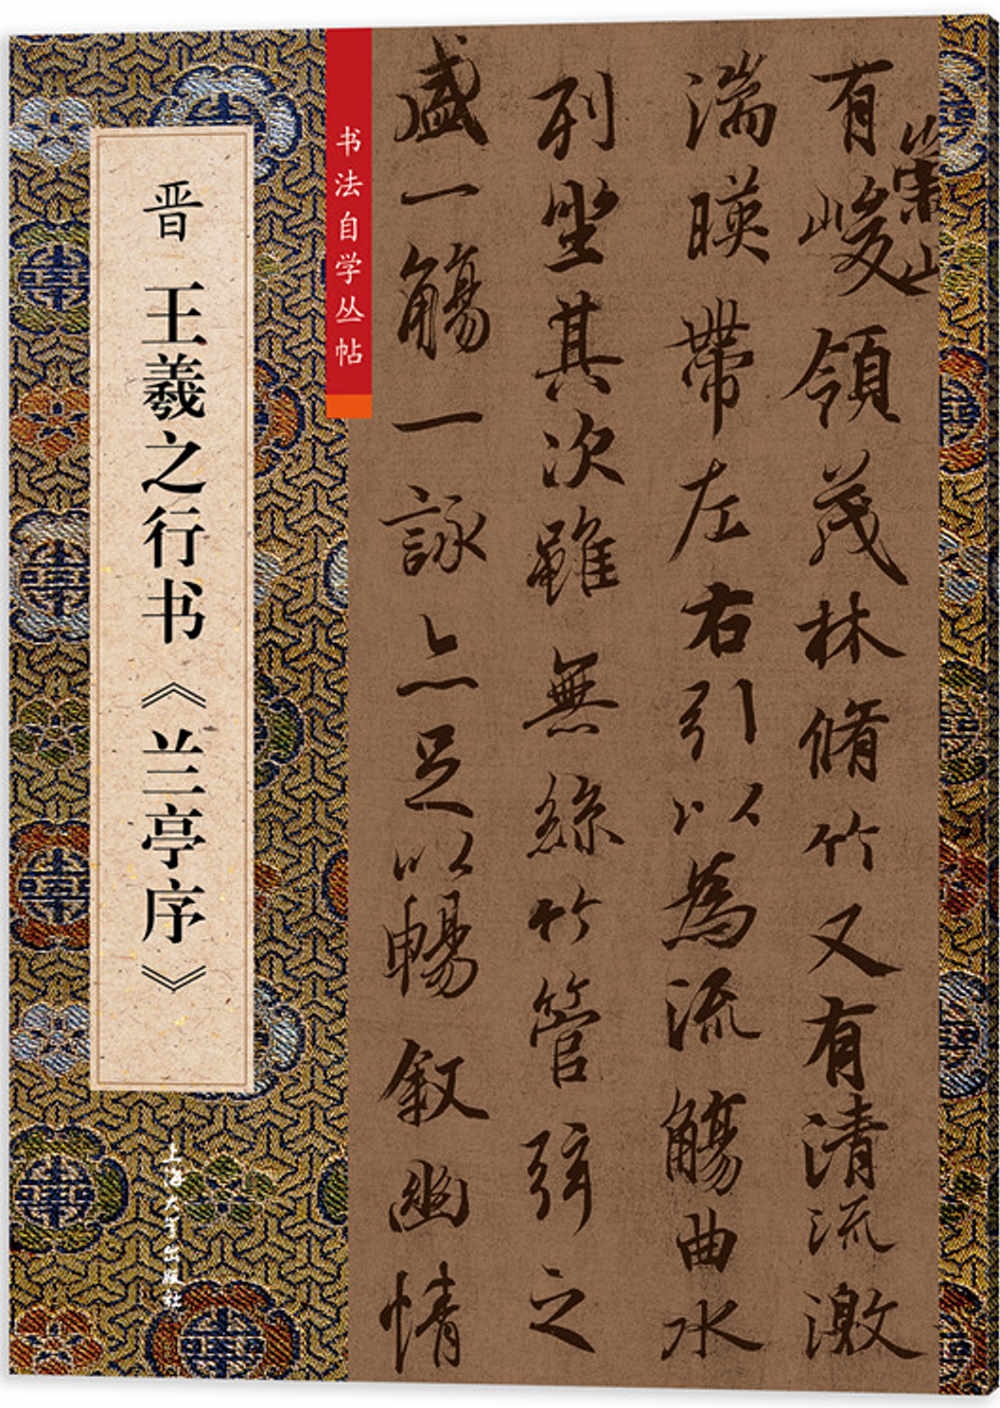 晋 王羲之行书《兰亭序》
书法自学丛帖
崇山
有峻領茂林脩竹又有清流激
湍暎帶左右引以為流觴曲水
列坐其次雖無絲竹管弦之
盛一觴一詠亦足以暢敘幽情
上海大学出版社